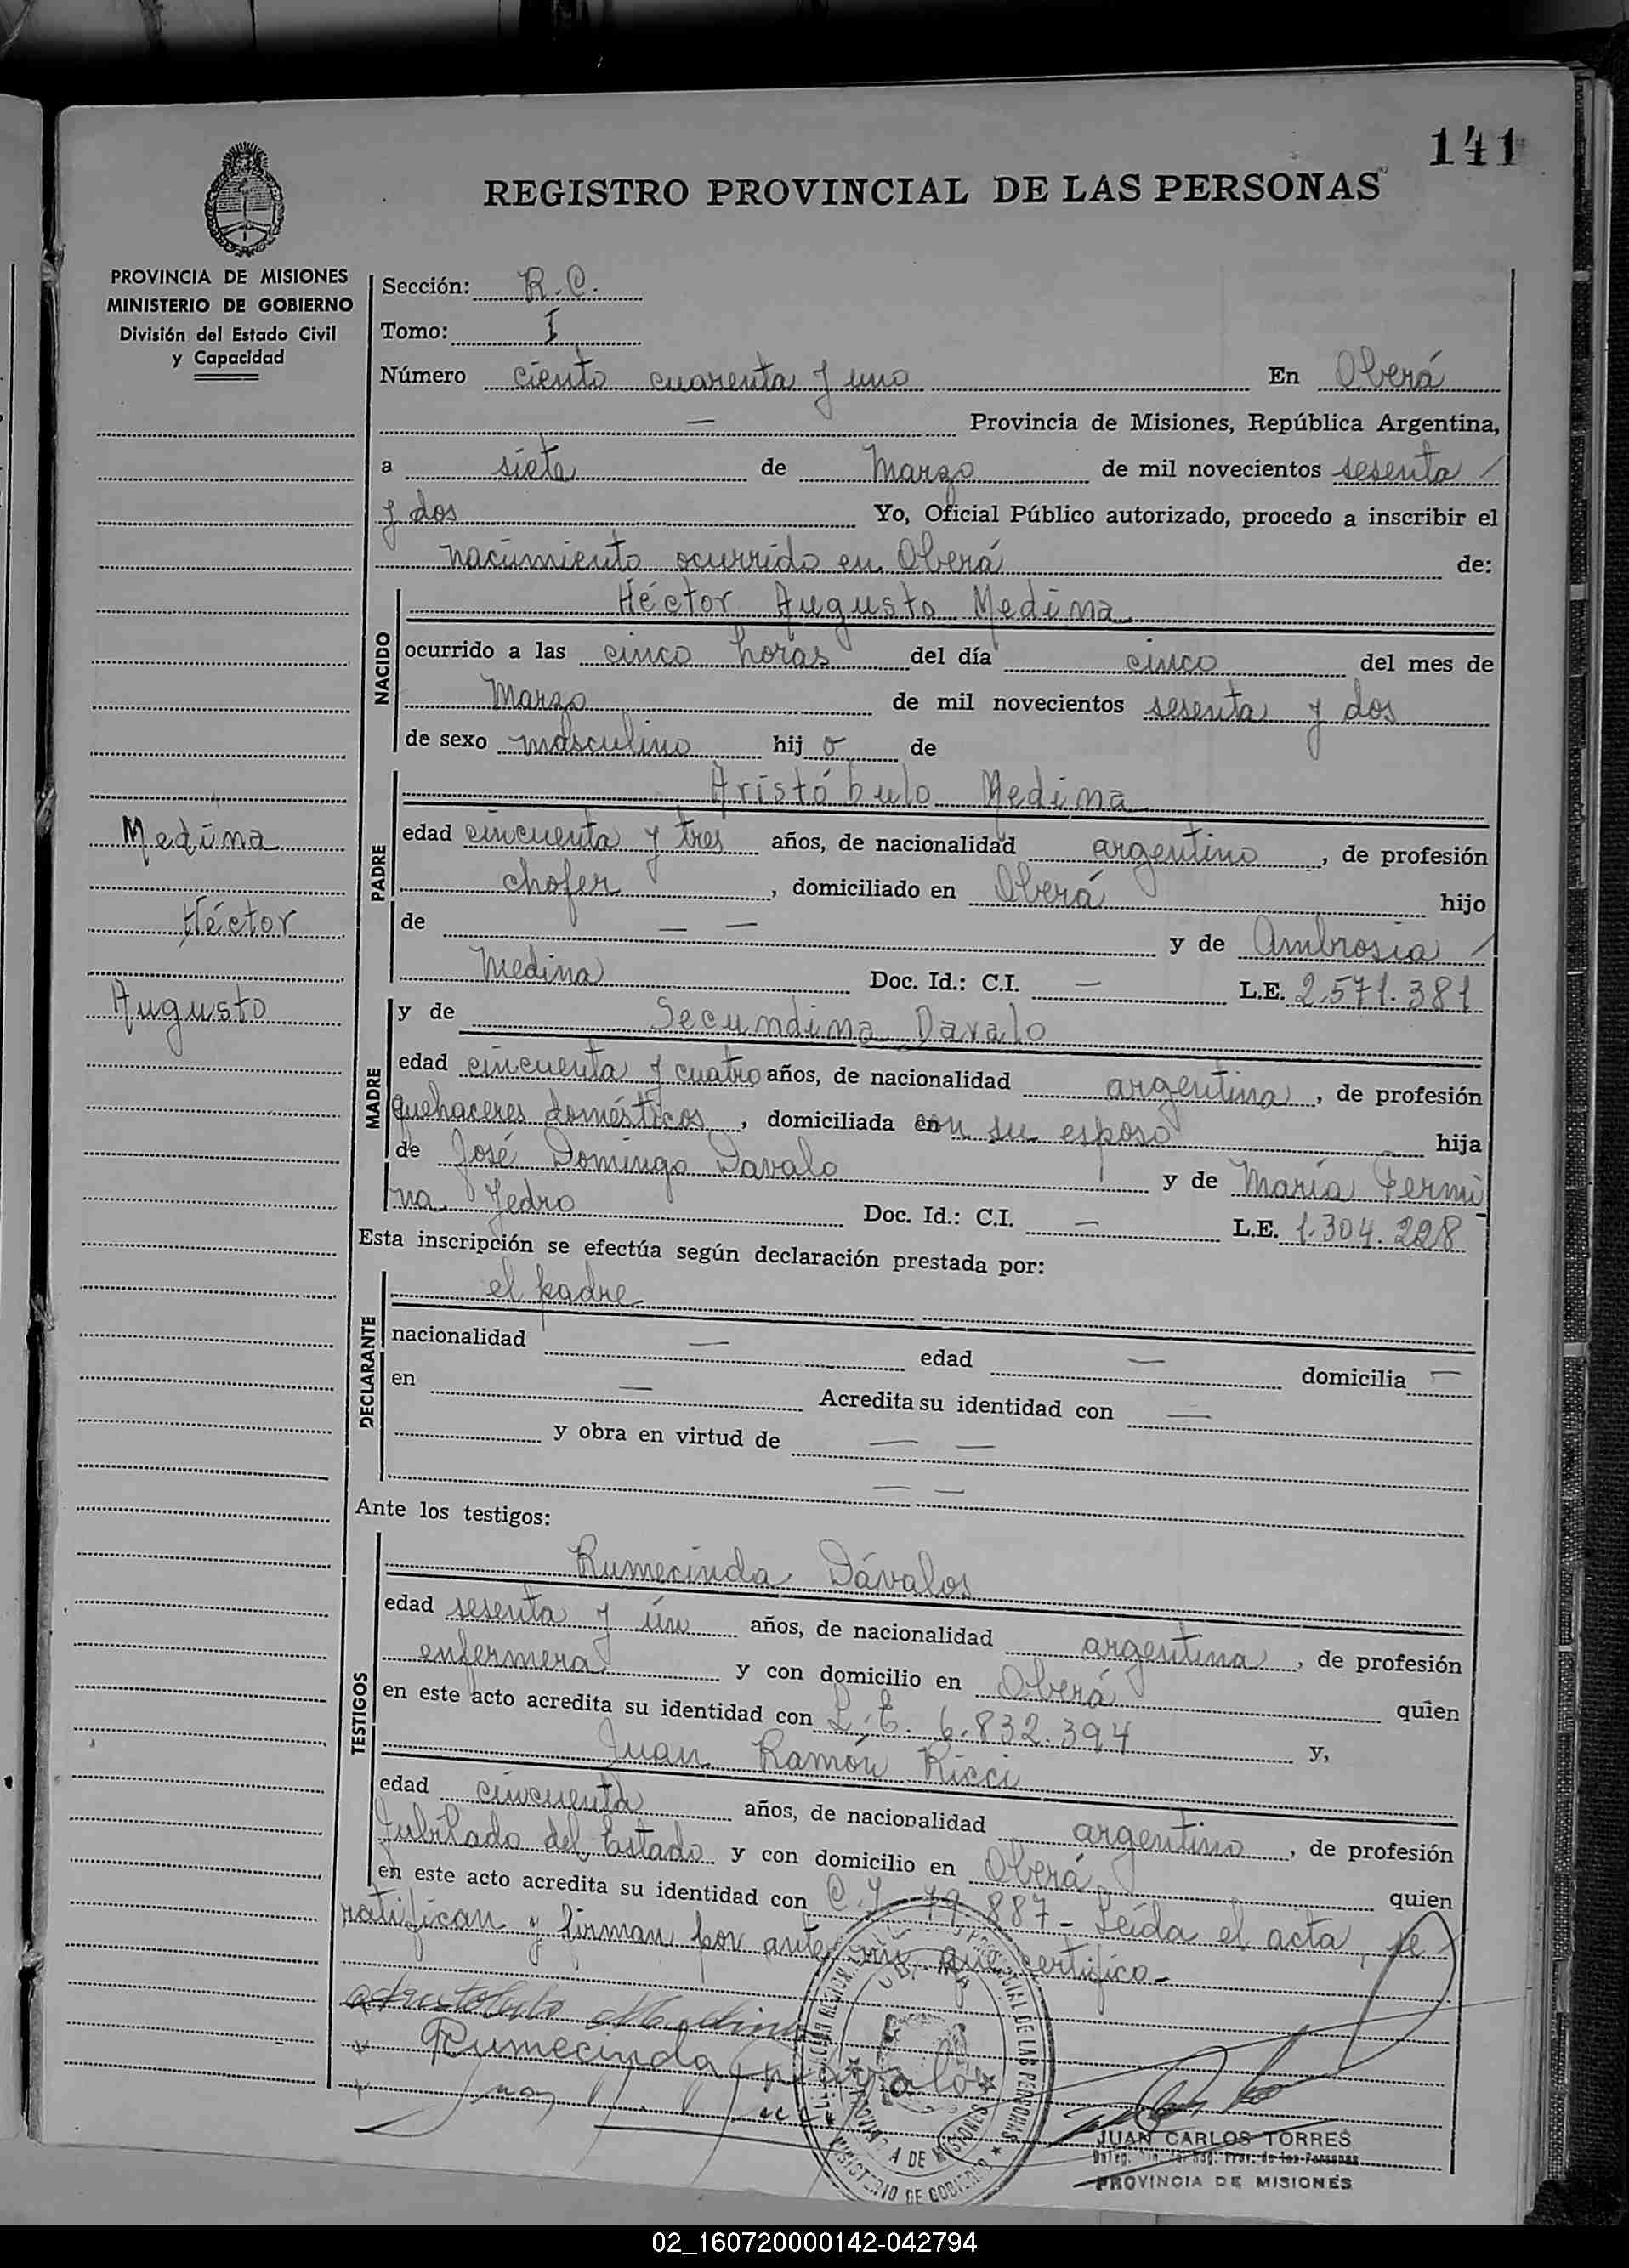 141
REGISTRO PROVINCIAL DE LAS PERSONAS
PROVINCIA DE MISIONES
MINISTERIO DE GOBIERNO
División del Estado Civil
y Capacidad
Medina
Héctor
Augusto
Sección: R.C.
Tomo: I
Número ciento cuarenta y uno En Oberá
— Provincia de Misiones, República Argentina,
a siete de Marzo de mil novecientos sesenta /
y dos Yo, Oficial Público autorizado, procedo a inscribir el
nacimiento ocurrido en Oberá de:
NACIDO
Héctor Augusto Medina
ocurrido a las cinco horas del día cinco del mes de
Marzo de mil novecientos sesenta y dos
de sexo masculino hijo de
PADRE
Aristóbulo Medina
edad cincuenta y tres años, de nacionalidad argentino, de profesión
chofer, domiciliado en Oberá hijo
de — — y de Ambrosia /
Medina Doc. Id.: C.I. — L.E. 2.571.381
MADRE
y de Secundina Davalo
edad cincuenta y cuatro años, de nacionalidad argentina, de profesión
quehaceres domésticos, domiciliada con su esposo hija
de José Domingo Davalo y de María Fermi
na Jedro Doc. Id.: C.I. — L.E. 1.304.228
Esta inscripción se efectúa según declaración prestada por:
DECLARANTE
el padre
nacionalidad — edad — domicilia —
en — Acredita su identidad con —
y obra en virtud de — —
— —
Ante los testigos:
TESTIGOS
Rumecinda Dávalos
edad sesenta y ún años, de nacionalidad argentina, de profesión
enfermera y con domicilio en Oberá quien
en este acto acredita su identidad con L.E. 6.832.394 y,
Juan Ramón Ricci
edad cincuenta años, de nacionalidad argentino, de profesión
Jubilado del Estado y con domicilio en Oberá quien
en este acto acredita su identidad con C.I. 79.887- Leída el acta, se
ratifican y firman por ante mi que certifico-
Aristobulo Medina
Rumecinda Davalos
JUAN CARLOS TORRES
PROVINCIA DE MISIONES
PROVINCIA DE MISIONES
MINISTERIO DE GOBIERNO
02_160720000142-042794